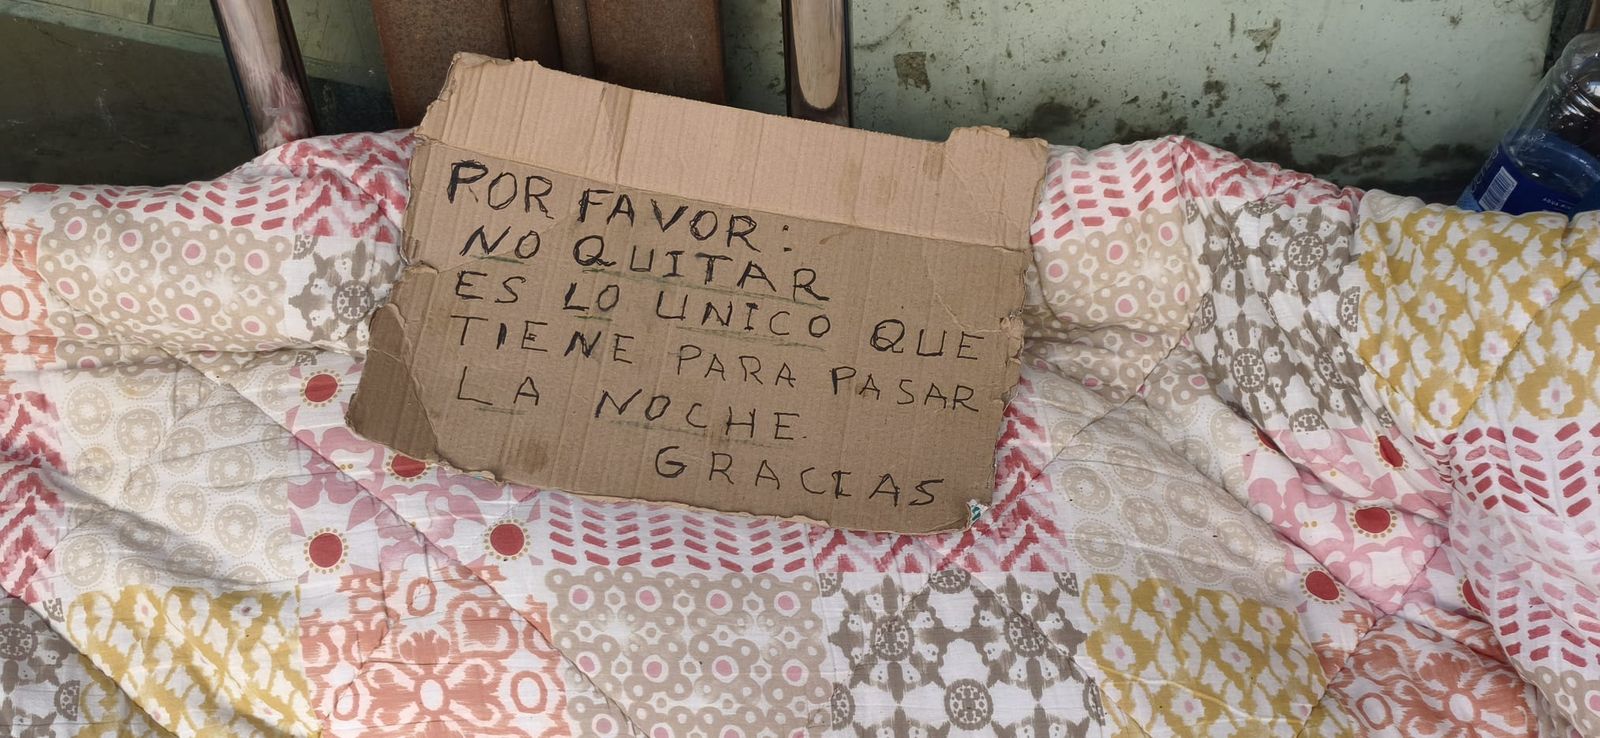 POR FAVOR:
NO QUITAR
ES LO UNICO QUE
TIENE PARA PASAR
LA NOCHE.
GRACIAS